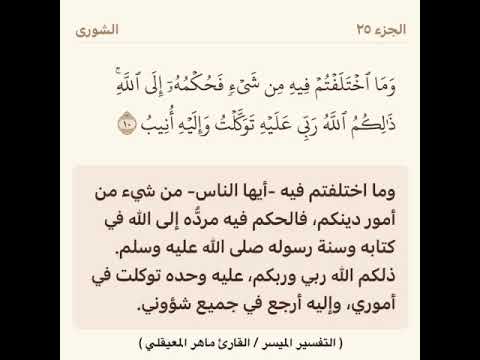 الجزء ٢٥
الشورى
وَمَا ٱخْتَلَفْتُمْ فِيهِ مِن شَىْءٍ فَحُكْمُهُۥٓ إِلَى ٱللَّهِ ۚ
ذَٰلِكُمُ ٱللَّهُ رَبِّى عَلَيْهِ تَوَكَّلْتُ وَإِلَيْهِ أُنِيبُ ١٠
وما اختلفتم فيه -أيها الناس- من شيء من
أمور دينكم، فالحكم فيه مردُّه إلى الله في
كتابه وسنة رسوله صلى الله عليه وسلم.
ذلكم الله ربي وربكم، عليه وحده توكلت في
أموري، وإليه أرجع في جميع شؤوني.
( التفسير الميسر / القارئ ماهر المعيقلي )